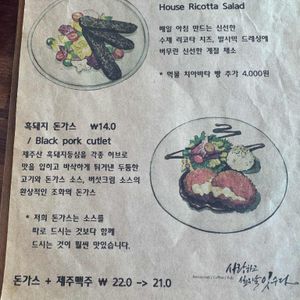 House Ricotta Salad
매일 아침 만드는 신선한
수제 리코타 치즈, 발사믹 드레싱에
버무린 신선한 계절 채소
* 먹물 치아바타 빵 추가 4,000원
흑돼지 돈가스 ₩14.0
/ Black pork cutlet
제주산 흑돼지등심을 각종 허브로
맛을 입히고 바삭하게 튀겨낸 두툼한
고기와 돈가스 소스, 버섯크림 소스의
환상적인 조화의 돈가스
* 저희 돈가스는 소스를
따로 드시는 것보다 함께
드시는 것이 훨씬 맛있습니다.
사랑하고
있수다
돈가스 + 제주맥주 ₩ 22.0 -> 21.0